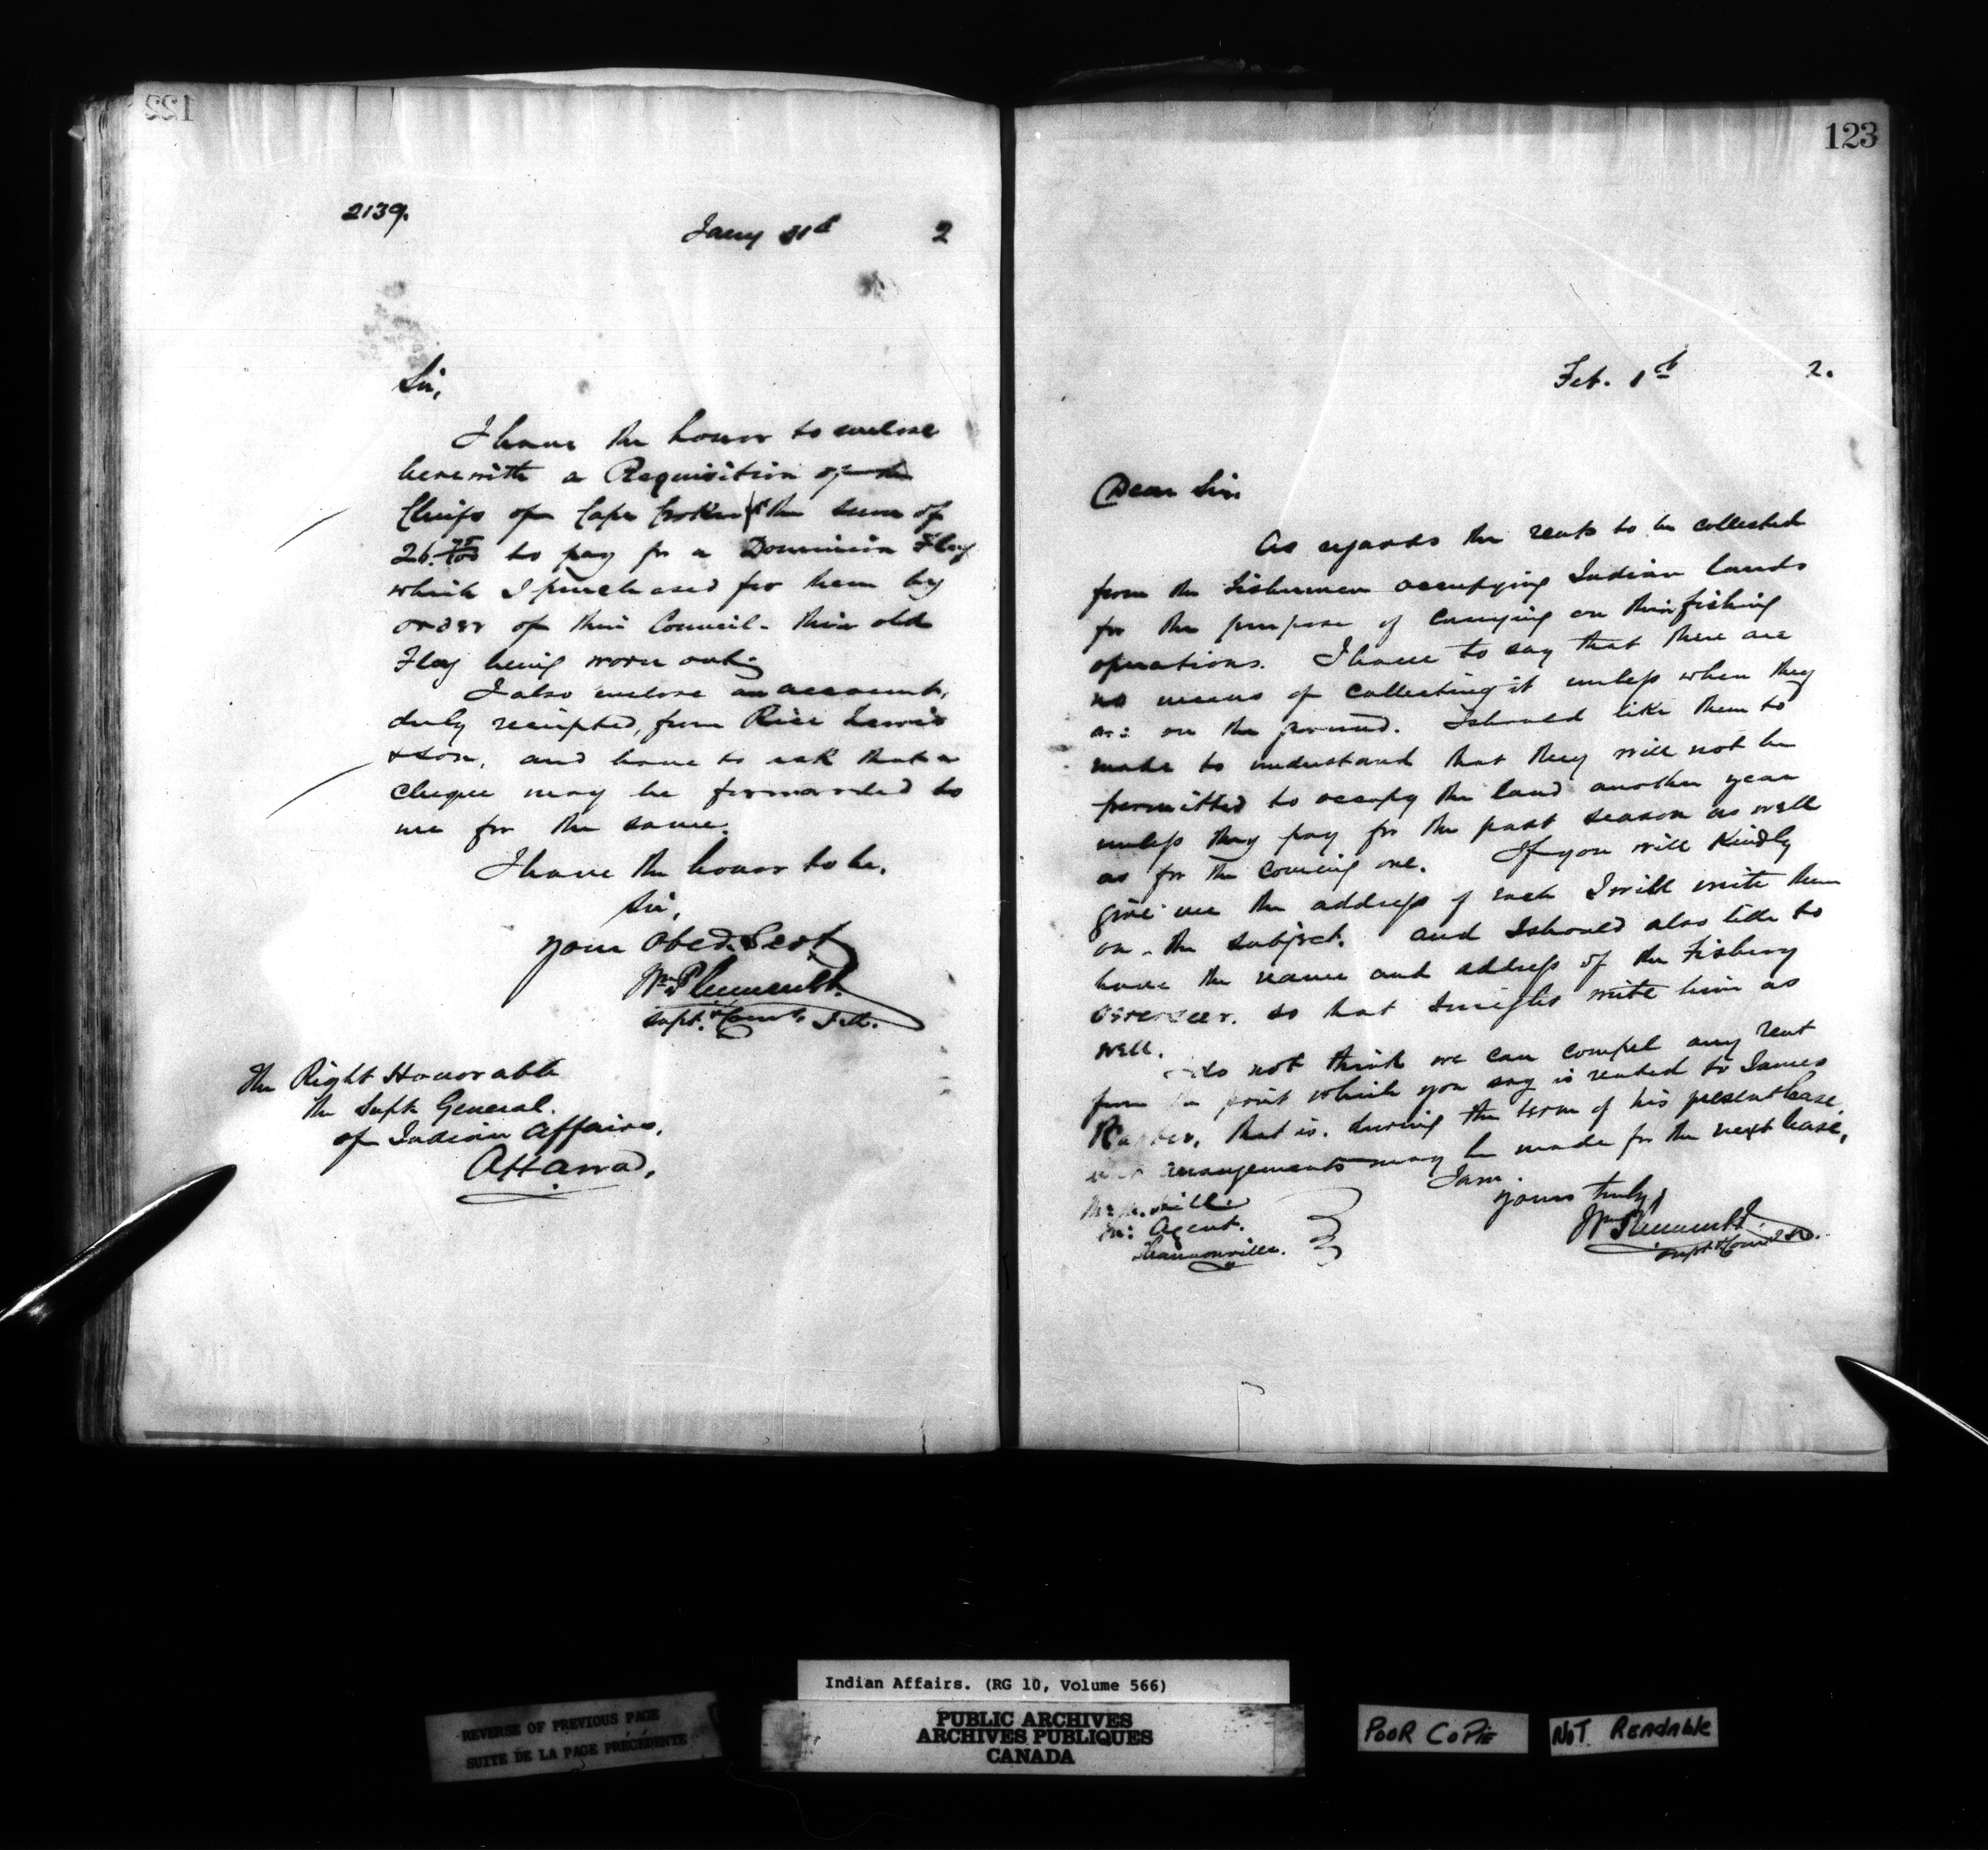 122
2139.
Jany 31st 2
Sir,
I have the honor to enclose
herewith a Requisition of the
Chiefs of Cape Croker for the sum of
26.75/100 to pay for a Dominion Flag
which I purchased for them by
order of their Council - their old
Flag being worn out.
I also enclose an account,
duly receipted, from Rice Lewis
& Son, and have to ask that a
cheque may be forwarded to
me for the same.
I have the honor to be,
Sir,
your Obed. Servt
Wm Plummer
Supt. & Comr. I.A.
The Right Honorable
the Supt General
of Indian Affairs,
Ottawa,
123
Feb. 1st 2.
Dear Sir
As regards the rents to be collected
from the Fishermen occupying Indian lands
for the purpose of carrying on their fishing
operations. I have to say that there are
no means of collecting it unless when they
are on the ground. I should like them to
made to understand that they will not be
permitted to occupy the land another year
unless they pay for the past season as well
as for the coming one. If you will Kindly
give me the address of each I will write them
on the subject. and I should also like to
have the name and address of the Fishery
overseer. so that I might write him as
well.
I do not think we can compel any rent
from the point which you say is rented to James
that is. during the term of his present lease
but arrangements may be made for the next lease.
I am.
yours truly,
Wm Plummer
Supt & Comr I.A.
Agent.
Shannonville.
Indian Affairs. (RG 10, Volume 566)
PUBLIC ARCHIVES
ARCHIVES PUBLIQUES
CANADA
REVERSE OF PREVIOUS PAGE
SUITE DE LA PAGE PRÉCÉDENTE
POOR COPIE
NOT READABLE